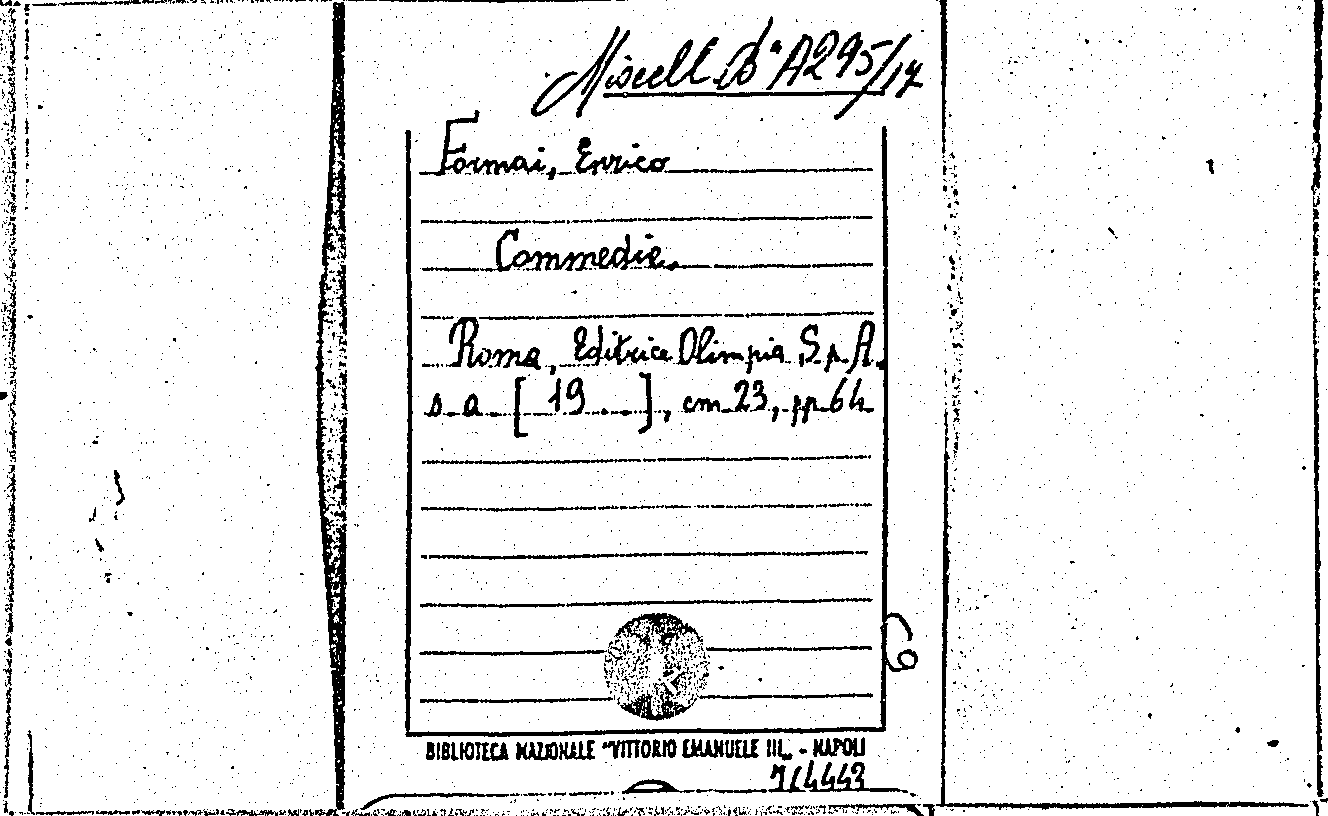 Miscell. Bª A295/17
Formai, Enrico
Commedie.
Roma, Editrice Olimpia S.p.A.
s. a. [19...], cm 23, pp. 64
BIBLIOTECA NAZIONALE "VITTORIO EMANUELE III„ - NAPOLI